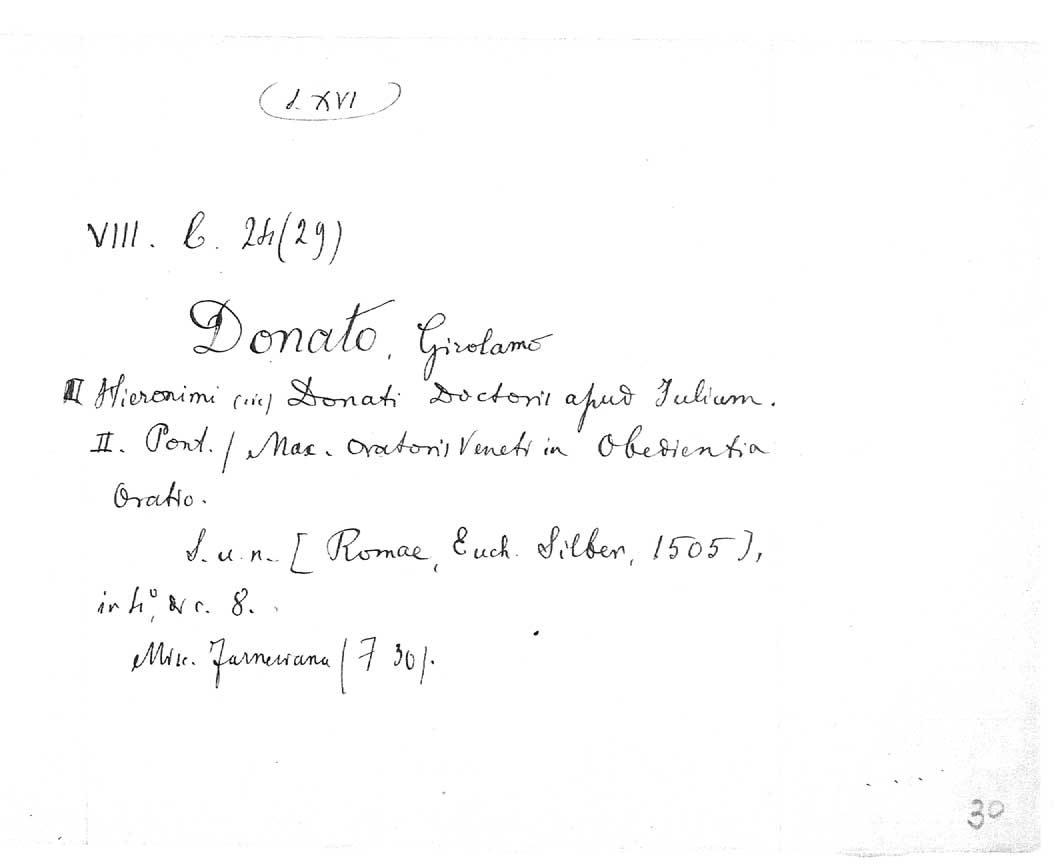 (s. XVI)
VIII. C. 24(29)
Donato, Girolamo
Hieronimi (sic) Donati Doctoris apud Iulium.
II. Pont. / Max. oratoris Veneti in Obedientia
Oratio.
S. u. n. [Romae, Euch. Silber, 1505],
in 4°, c. 8.
Misc. Farnesiana (F 30).
30